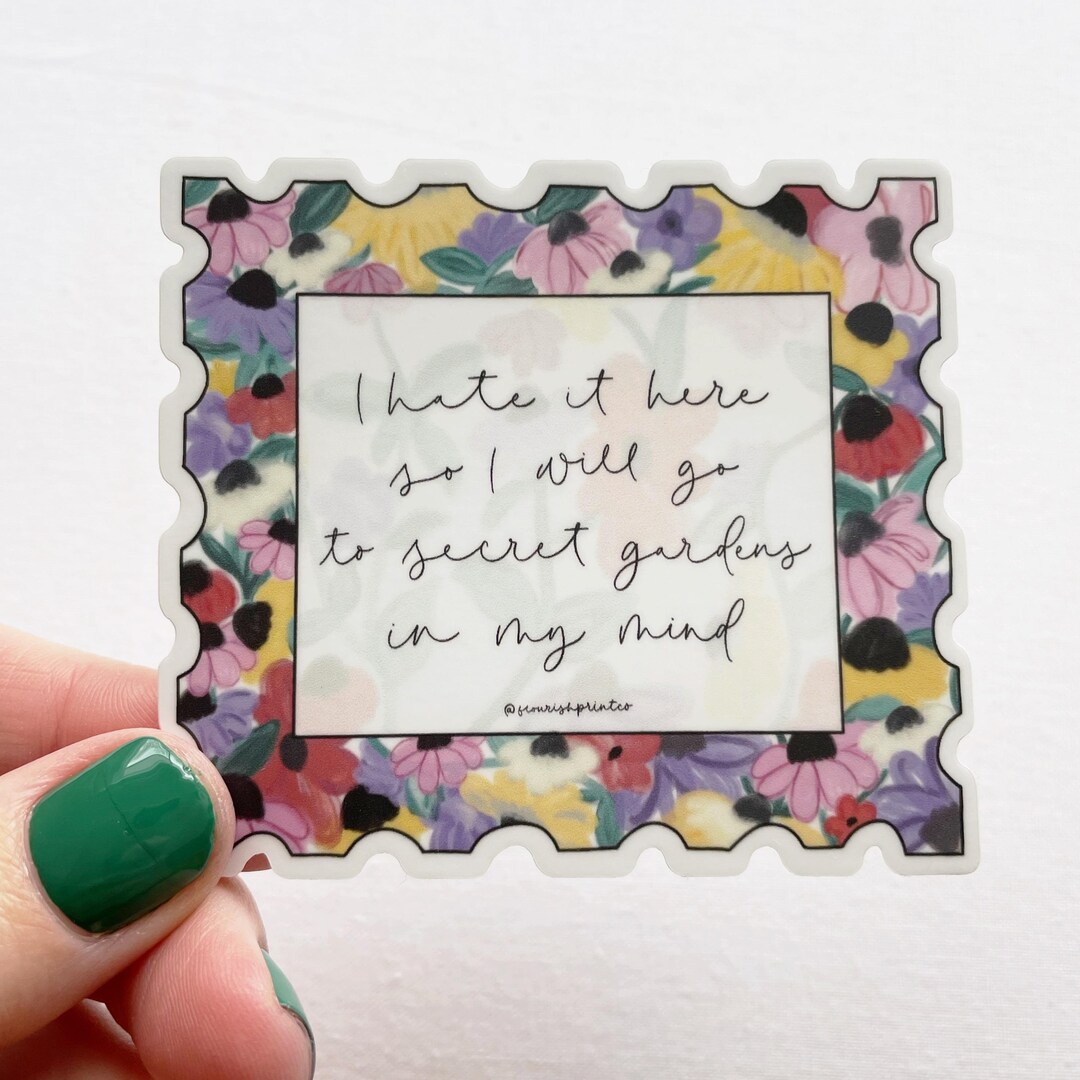 I hate it here
so I will go
to secret gardens
in my mind
@flourishprintco